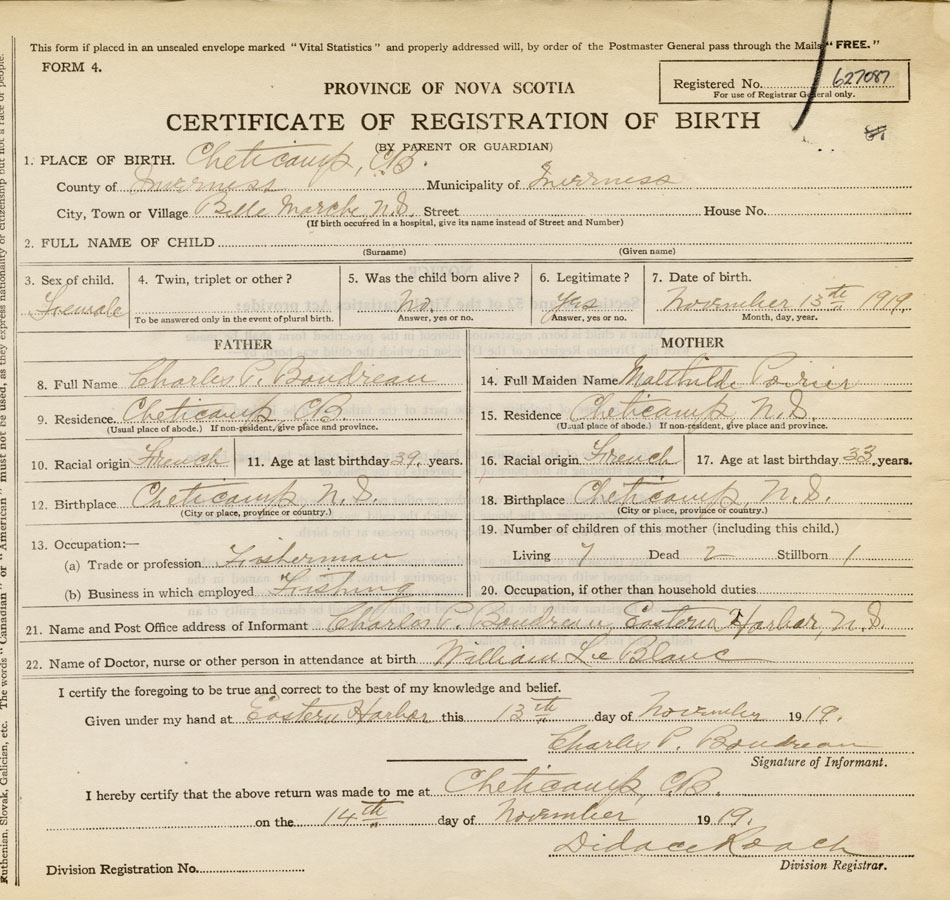 This form if placed in an unsealed envelope marked "Vital Statistics" and properly addressed will, by order of the Postmaster General pass through the Mails "FREE."
FORM 4.
Registered No. 627087
For use of Registrar General only.
PROVINCE OF NOVA SCOTIA
CERTIFICATE OF REGISTRATION OF BIRTH
(BY PARENT OR GUARDIAN)
1. PLACE OF BIRTH. Cheticamp, C.B.
County of Inverness Municipality of Inverness
City, Town or Village Belle Marche, N.S. Street House No.
(If birth occurred in a hospital, give its name instead of Street and Number)
2. FULL NAME OF CHILD
(Surname) (Given name)
3. Sex of child. 4. Twin, triplet or other? 5. Was the child born alive? 6. Legitimate? 7. Date of birth.
Female No. Yes November 13th 1919.
To be answered only in the event of plural birth. Answer, yes or no. Answer, yes or no. Month, day, year.
FATHER MOTHER
8. Full Name Charles P. Boudreau 14. Full Maiden Name Mathilde Poirier
9. Residence Cheticamp CB 15. Residence Cheticamp, N.S.
(Usual place of abode.) If non-resident, give place and province. (Usual place of abode.) If non-resident, give place and province.
10. Racial origin French 11. Age at last birthday 39. years. 16. Racial origin French 17. Age at last birthday 33. years.
12. Birthplace Cheticamp N.S. 18. Birthplace Cheticamp, N.S.
(City or place, province or country.) (City or place, province or country.)
13. Occupation:— 19. Number of children of this mother (including this child.)
(a) Trade or profession Fisherman Living 7 Dead 2 Stillborn 1
(b) Business in which employed Fishing 20. Occupation, if other than household duties
21. Name and Post Office address of Informant Charles P. Boudreau Eastern Harbor, N.S.
22. Name of Doctor, nurse or other person in attendance at birth William Le Blanc
I certify the foregoing to be true and correct to the best of my knowledge and belief.
Given under my hand at Eastern Harbor this 13th day of November 1919.
Charles P. Boudreau
Signature of Informant.
I hereby certify that the above return was made to me at Cheticamp, C.B.
on the 14th day of November 1919.
Didace Roach
Division Registration No. Division Registrar.
Ruthenian, Slovak, Galician, etc. The words "Canadian" or "American" must not be used, as they express nationality or citizenship but not a race of people.